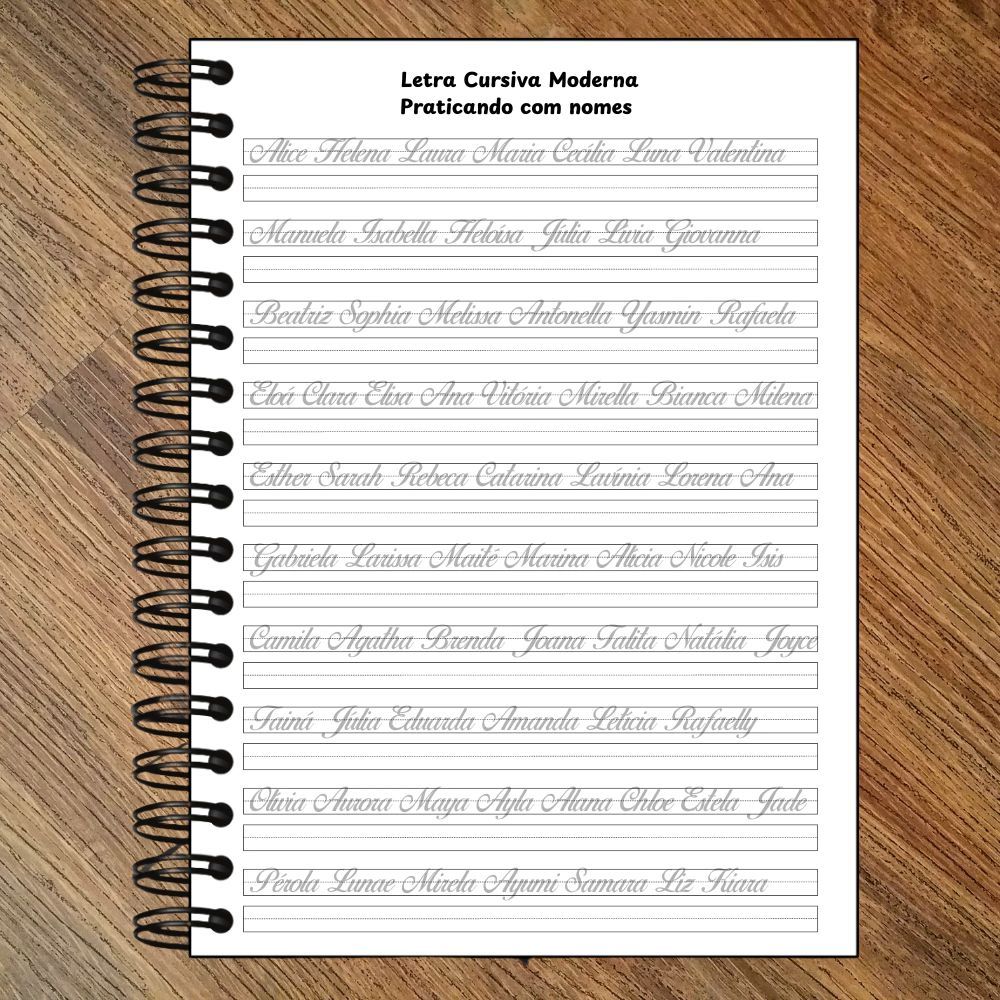 Letra Cursiva Moderna
Praticando com nomes
Alice Helena Laura Maria Cecília Luna Valentina
Manuela Isabella Heloísa Júlia Lívia Giovanna
Beatriz Sophia Melissa Antonella Yasmin Rafaela
Eloá Clara Elisa Ana Vitória Mirella Bianca Milena
Esther Sarah Rebeca Catarina Lavínia Lorena Ana
Gabriela Larissa Maitê Marina Alícia Nicole Isis
Camila Agatha Brenda Joana Talita Natália Joyce
Tainá Júlia Eduarda Amanda Letícia Rafaelly
Olivia Aurora Maya Ayla Alana Chloe Estela Jade
Pérola Lunae Mirela Ayumi Samara Liz Kiara